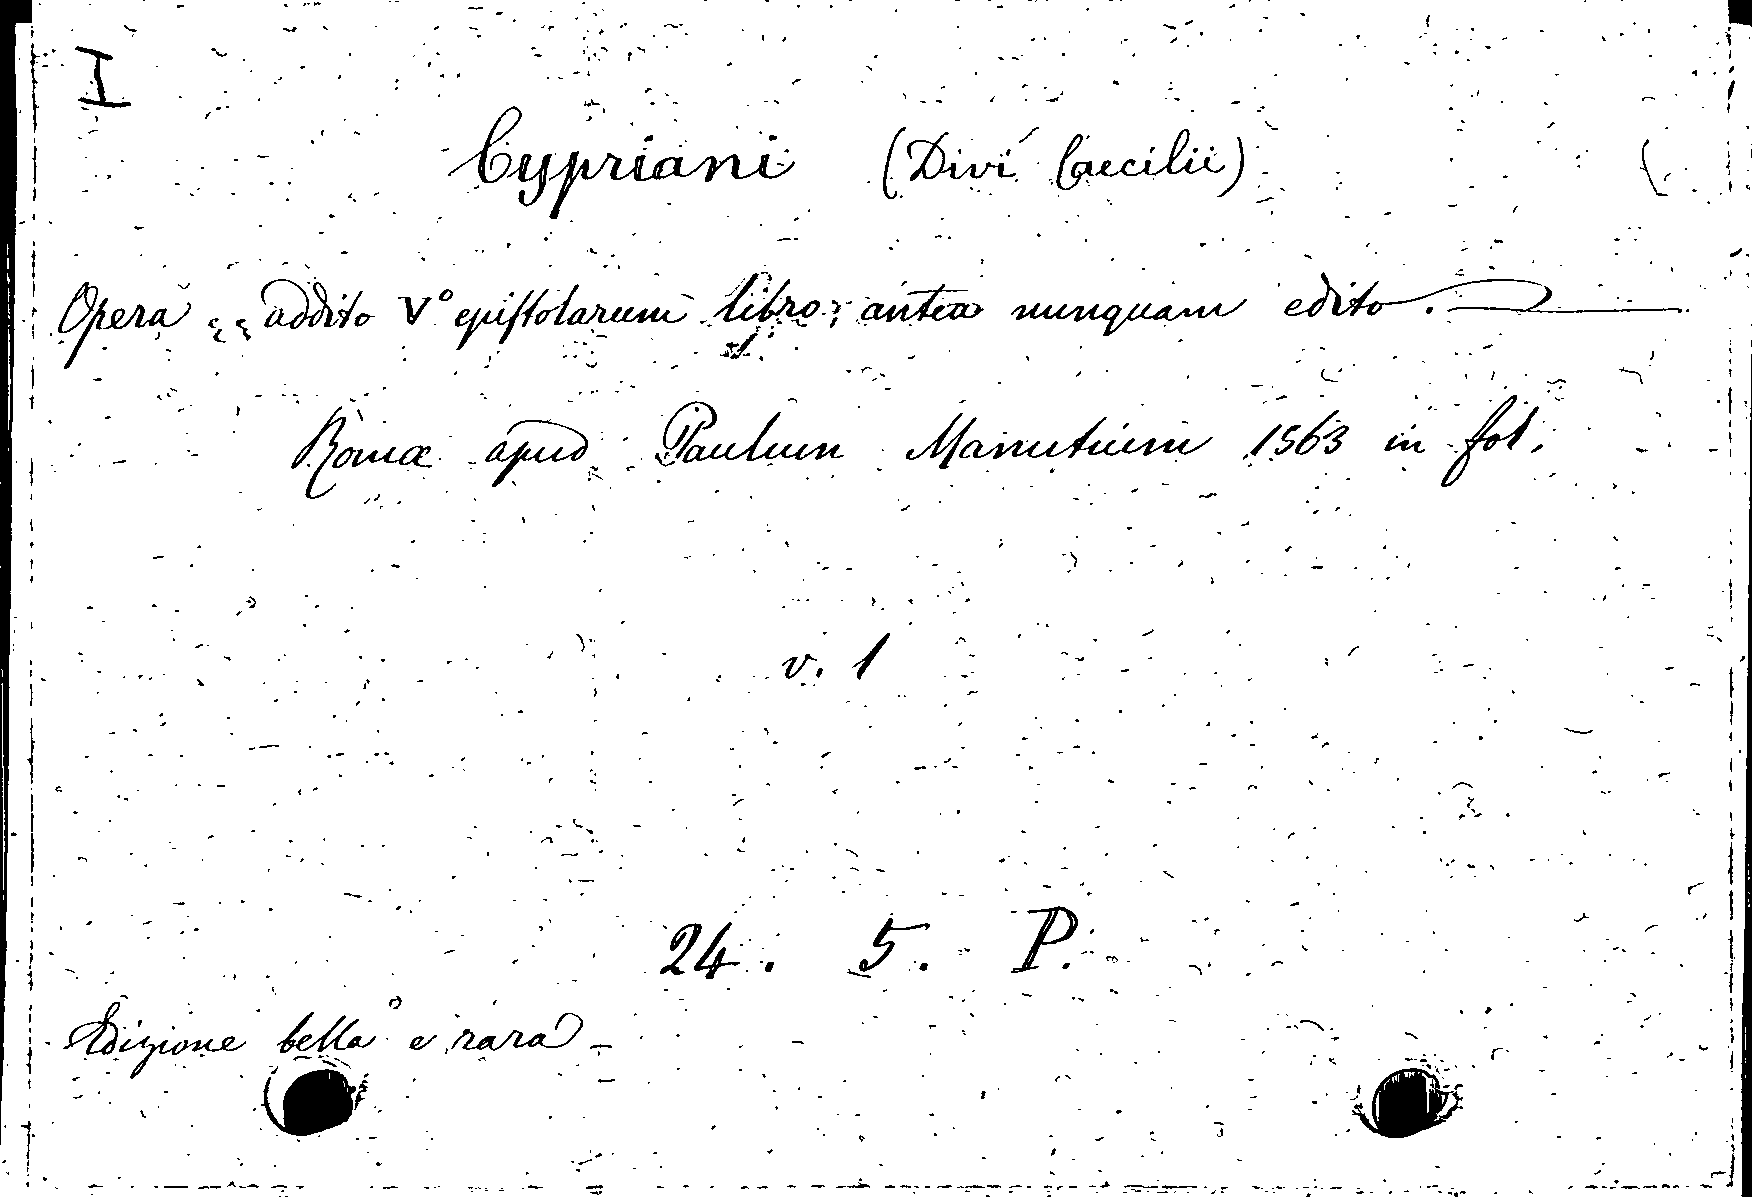 I
Cypriani (Divi Caecilii)
Opera addito V° epistolarum libro; antea nunquam edito.
Romæ apud Paulum Manutium 1563 in fol.
v. 1
24. 5. P.
Edizione bella e rara